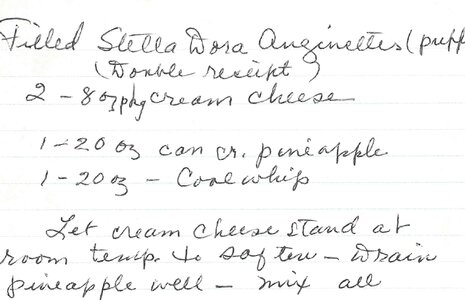 Filled Stella Dora Anginettes (puff
(Double receipt)
2 - 8 oz pkg cream cheese
1 - 20 oz can cr. pineapple
1 - 20 oz - Cool whip
Let cream cheese stand at
room temp. to soften - Drain
pineapple well - mix all